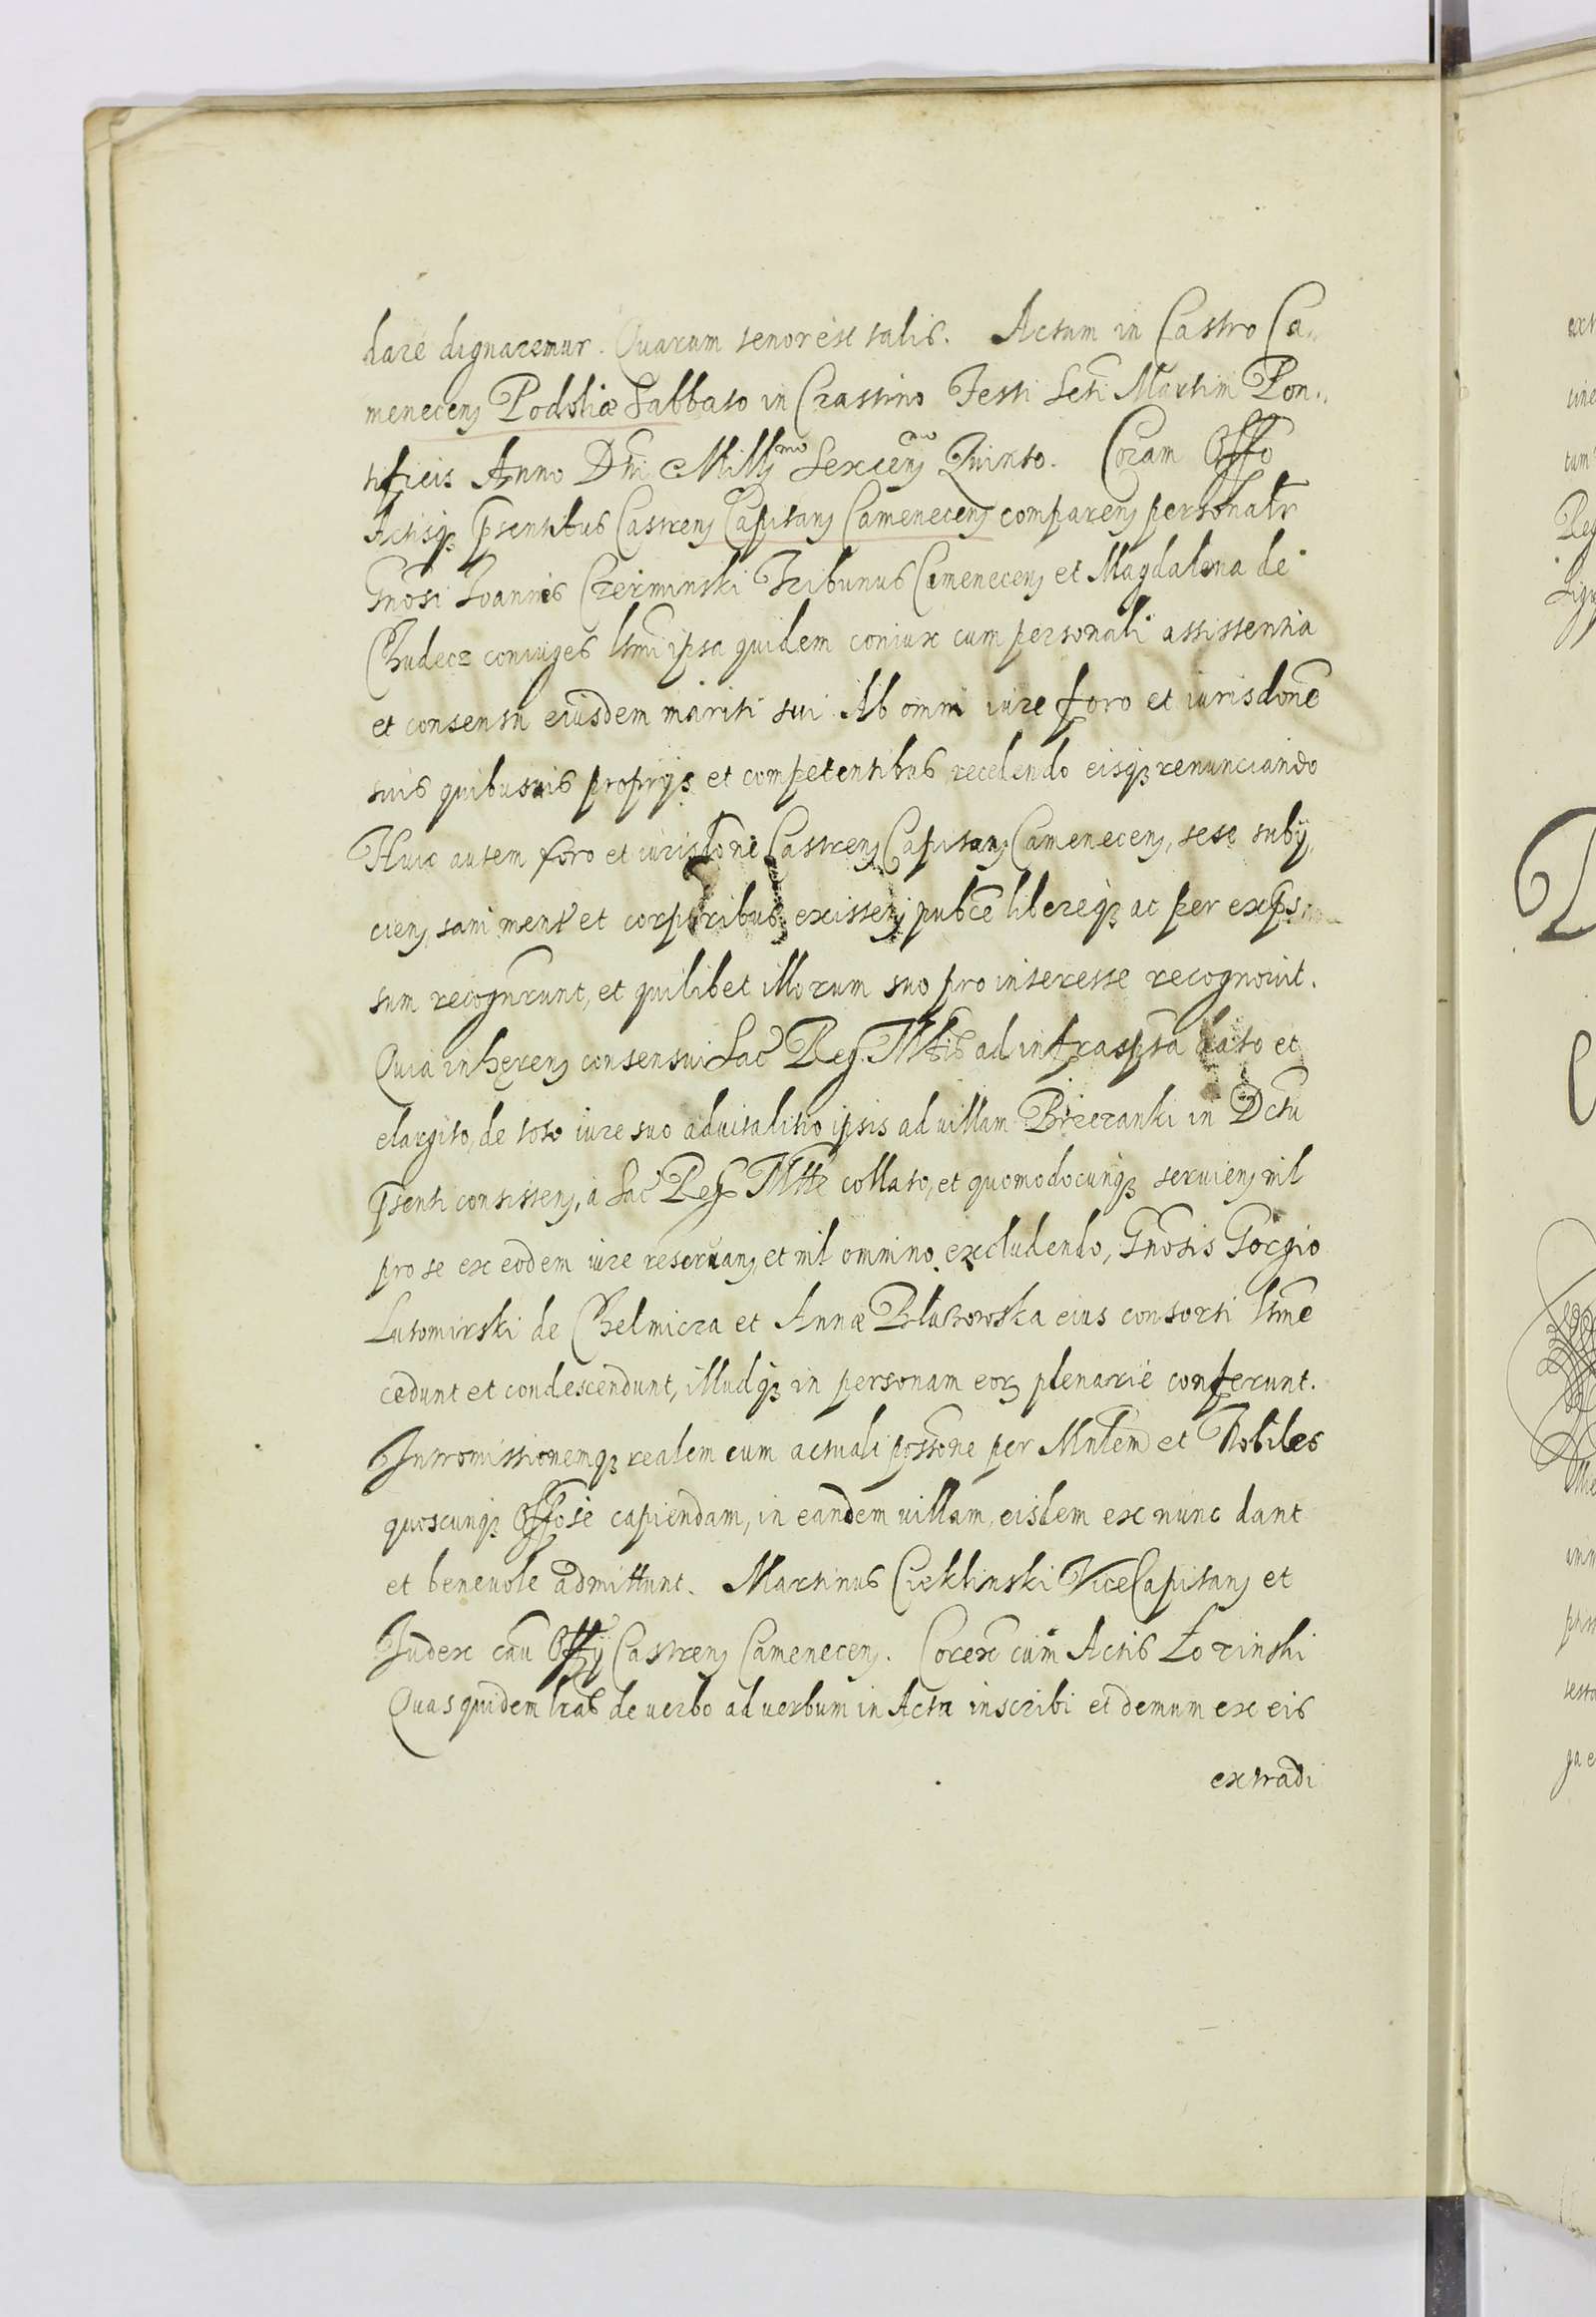 dare dignaremur. Quarum tenor est talis. Actum in Castro Ca„
menecen̄ Podoliæ Sabbato in Crastino Festi Scti Martini Pon„
tificis Anno Dni Mill̄mo Sexcen̄mo Quinto. Coram Offo
Actisq̄ p̄sentibus Castren̄ Capitan̄ Camenecen̄ comparen̄ personalr
Gnosi Joannes Czerminski Tribunus Camenecen̄ et Magdalena de
Chudecz coniuges ltmi ipsa quidem coniux cum personali assistentia
et consensu eiusdem mariti sui Ab omni iure foro et iurisdone
suis quibusuis proprijs et competentibus recedendo eisq̄ renunciando
Huic autem foro et iurisdoni Castren̄ Capitan̄ Camenecen̄, sese subij„
cien̄, sani mente et corporibus existen̄ pubce libereq̄ ac per exp̄s
sum recognrunt, et quilibet illorum suo pro interesse recognouit.
Quia inhęren̄ consensui Sac Reg. Mtis ad infrasp̄ta dato et
elargito, de toto iure suo aduitalitio ipsis ad uillam Brzezanki in Dctu
p̄senti consisten̄, a Sac Reg Mtte collato, et quomodocunq̄ seruien̄ nil
pro se ex eodem iure reseruan̄, et nil omnino excludendo, Gnosis Gorgio
Lutomirski de Chelmicza et Annæ Bluszowska eius consorti ltme
cedunt et condescendunt, illudq̄ in personam eor̄ plenarié conferunt.
Intromissionemq̄ realem cum actuali possone per Mnlem et Nobiles
quoscunq̄ Offose capiendam, in eandem uillam, eisdem ex nunc dant
et beneuole admittunt. Martinus Cieklinski ViceCapitan̄ et
Judex cau Offij Castren̄ Camenecen̄. Corex cum Actis Łozinski
Quas quidem lras de uerbo ad uerbum in Acta inscribi et demum ex eis
extradi